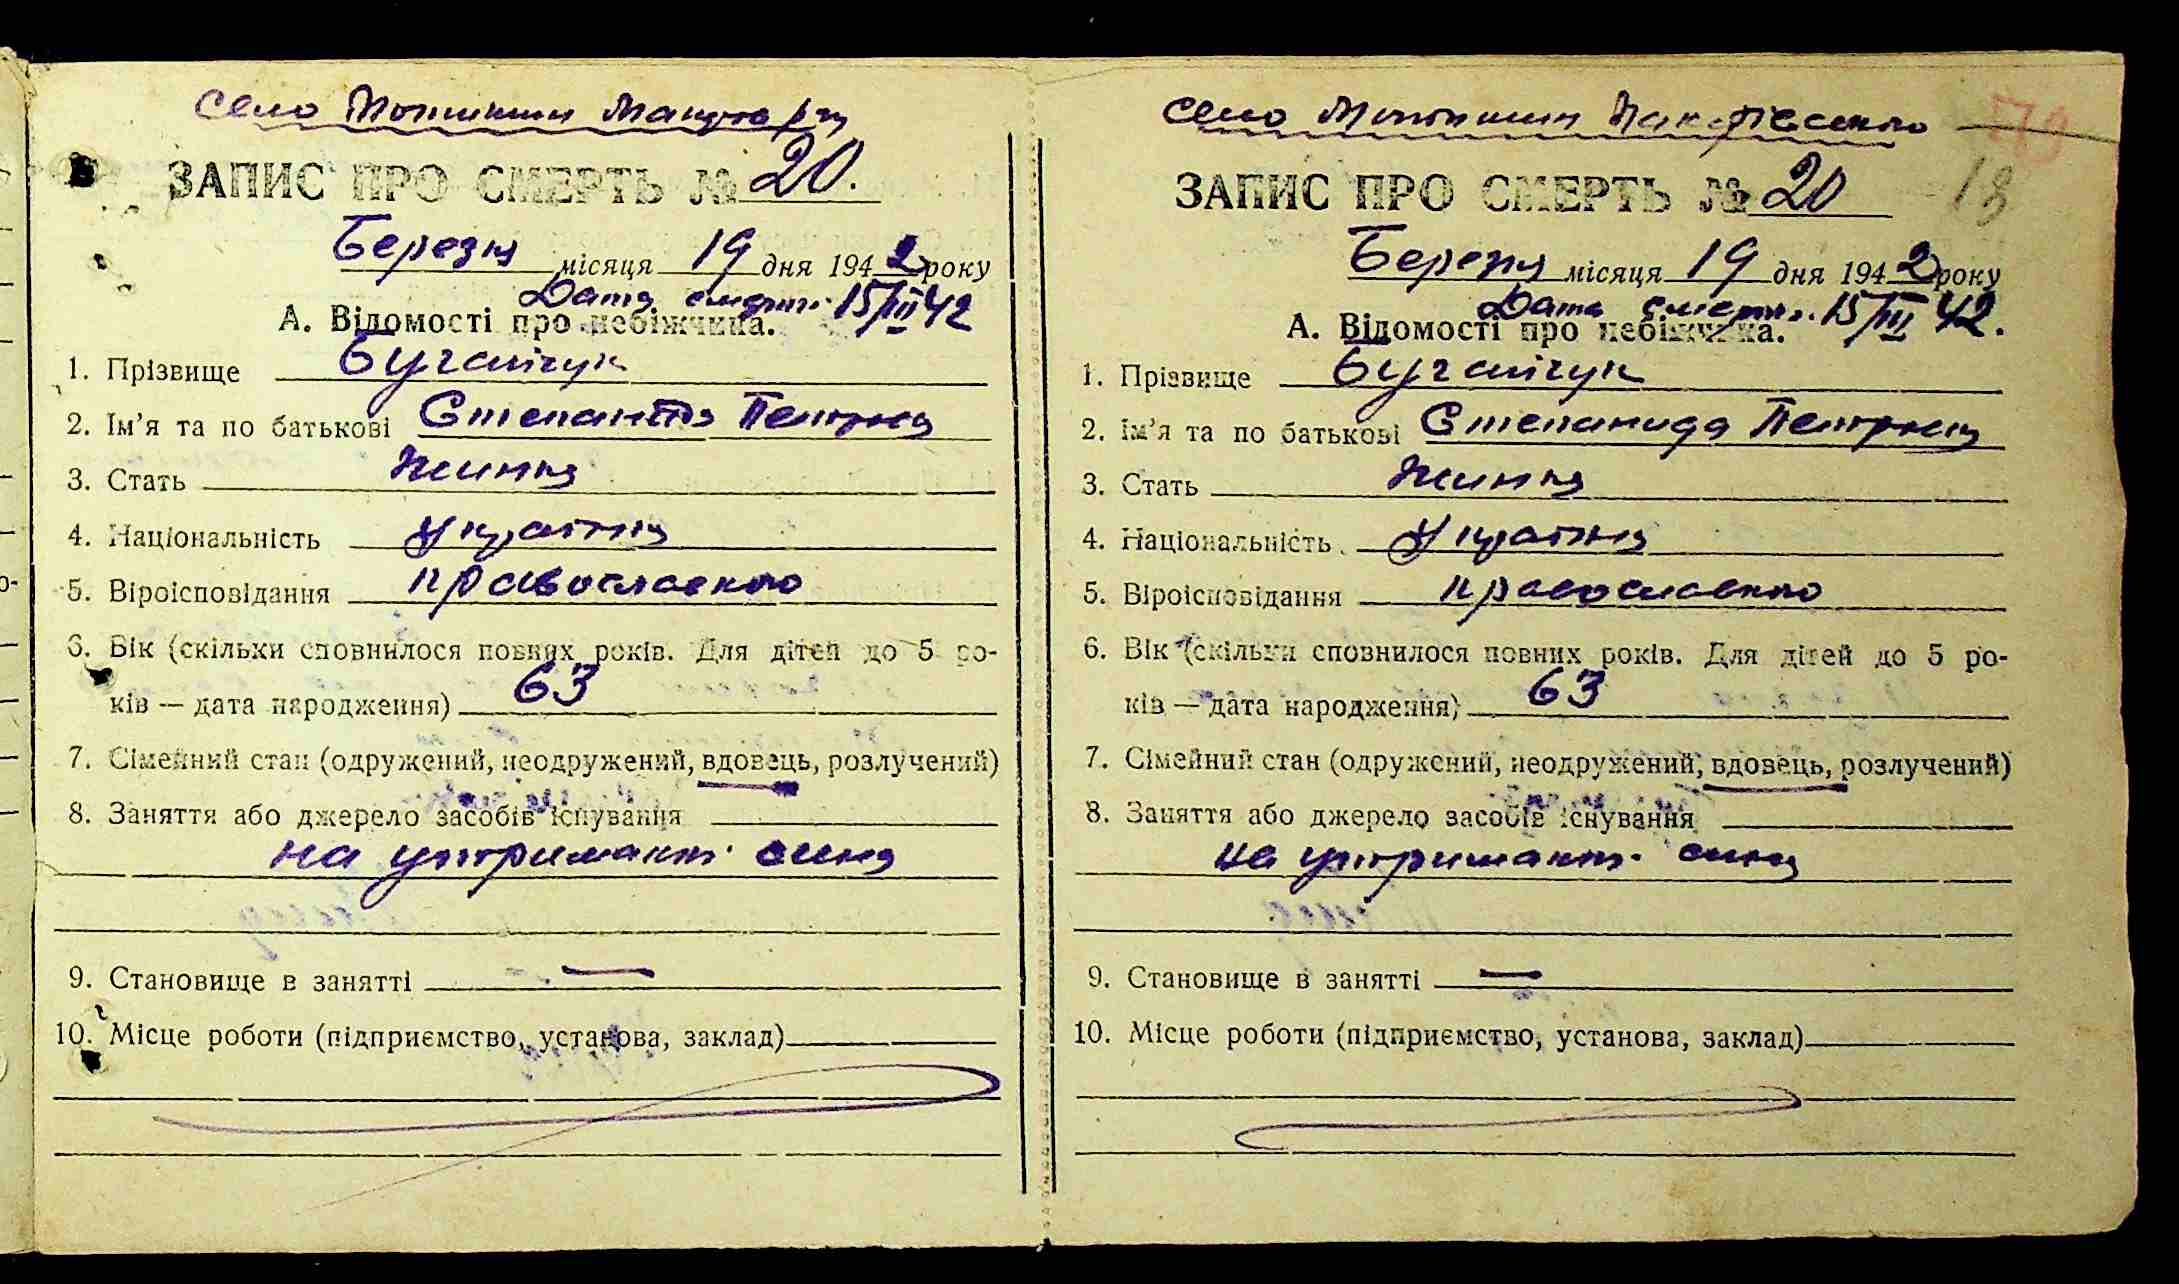 Село
ЗАПИС ПРО СМЕРТЬ № 20.
Березня місяця 19 дня 1942 року
Дата смерти 15/III 42
А. Відомості про небіжчика.
1. Прізвище
2. Ім'я та по батькові Степанида Петрівна
3. Стать Жіноча
4. Національність Українка
5. Віроісповідання православна
6. Вік (скільки сповнилося повних років. Для дітей до 5 ро-
ків — дата народження) 63
7. Сімейний стан (одружений, неодружений, вдовець, розлучений)
8. Заняття або джерело засобів існування
на утриманні сина
9. Становище в занятті —
10. Місце роботи (підприємство, установа, заклад)
Село
ЗАПИС ПРО СМЕРТЬ № 20
18
Березня місяця 19 дня 1942 року
Дата смерти 15/III 42.
А. Відомості про небіжчика.
1. Прізвище
2. Ім'я та по батькові Степанида Петрівна
3. Стать Жіноча
4. Національність Українка
5. Віроісповідання православна
6. Вік (скільки сповнилося повних років. Для дітей до 5 ро-
ків — дата народження) 63
7. Сімейний стан (одружений, неодружений, вдовець, розлучений)
8. Заняття або джерело засобів існування
на утриманні сина
9. Становище в занятті —
10. Місце роботи (підприємство, установа, заклад)